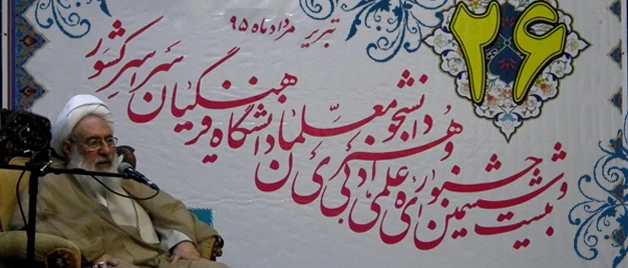 تبریز مرداد ماه ۹۵
۲۶
بیست و ششمین جشنواره ی علمی ادبی و هنری
دانشجو معلمان دانشگاه فرهنگیان سراسر کشور